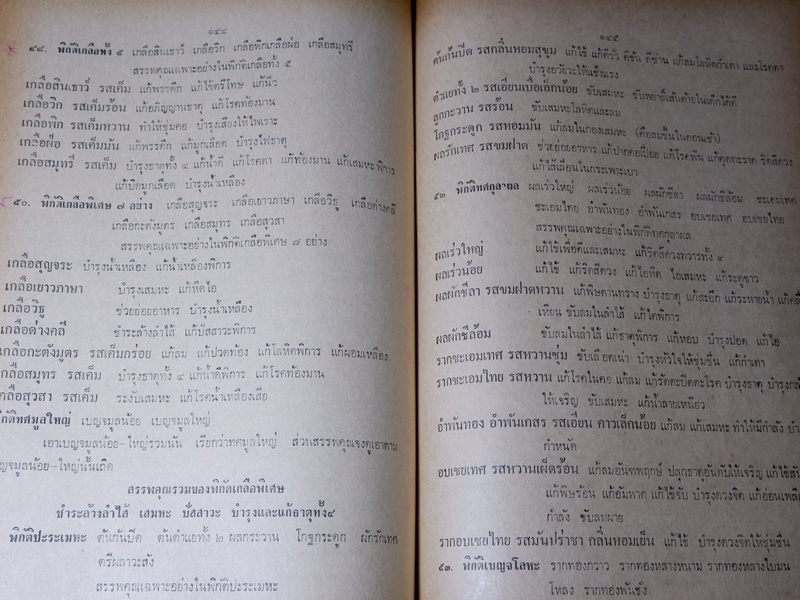 ๑๔๔
๔๘. พิกัดเกลือทั้ง ๕ เกลือสินเธาว์ เกลือวิก เกลือพิกเกลือฝ่อ เกลือสมุทรี
สรรพคุณเฉพาะอย่างในพิกัดเกลือทั้ง ๕
เกลือสินเธาว์ รสเค็ม แก้พรรดึก แก้ไข้ตรีโทษ แก้นิ่ว
เกลือวิก รสเค็มร้อน แก้อภิญญานธาตุ แก้โรคท้องมาน
เกลือพิก รสเค็มหวาน ทำให้ชุ่มคอ บำรุงเสียงให้ไพเราะ
เกลือฝ่อ รสเค็มมัน แก้พรรดึก แก้มุกเลือด บำรุงไฟธาตุ
เกลือสมุทรี รสเค็ม บำรุงธาตุทั้ง ๔ แก้น้ำดี แก้โรคตา แก้ท้องมาน แก้เสมหะพิการ
แก้บิดมูกเลือด บำรุงน้ำเหลือง
๕๐. พิกัดเกลือพิเศษ ๗ อย่าง เกลือสุญจระ เกลือเยาวภาษา เกลือวิธู เกลือด่างคลี
เกลือกะตังมูตร เกลือสมุทร เกลือสุวสา
สรรพคุณเฉพาะอย่างในพิกัดเกลือพิเศษ ๗ อย่าง
เกลือสุญจระ บำรุงน้ำเหลือง แก้น้ำเหลืองพิการ
เกลือเยาวภาษา บำรุงเสมหะ แก้หืดไอ
เกลือวิธู ช่วยย่อยอาหาร บำรุงน้ำเหลือง
เกลือด่างคลี ชำระล้างลำไส้ แก้ปัสสาวะพิการ
เกลือกะตังมูตร รสเค็มกร่อย แก้ลม แก้ปวดท้อง แก้โลหิตพิการ แก้ผอมเหลือง
เกลือสมุทร รสเค็ม บำรุงธาตุทั้ง ๔ แก้น้ำดีพิการ แก้โรคท้องมาน
เกลือสุวสา รสเค็ม ระงับเสมหะ แก้โรคน้ำเหลืองเสีย
กัดทศมูลใหญ่ เบญจมูลน้อย เบญจมูลใหญ่
เอาเบญจมูลน้อย-ใหญ่รวมนั้น เรียกว่าทศมูลใหญ่ ส่วนสรรพคุณจงดูเอาตาม
ญจมูลน้อย-ใหญ่นั้นเถิด
สรรพคุณรวมของพิกัดเกลือพิเศษ
ชำระล้างลำไส้ เสมหะ ปัสสาวะ บำรุงและแก้ธาตุทั้ง๔
พิกัดปะระเมหะ ต้นก้นปิด ต้นตำแยทั้ง ๒ ผลกระวาน โกฐกระดูก ผักรักเทศ
ตรีผลาวะสัง
สรรพคุณเฉพาะอย่างในพิกัดปะระเมหะ
๑๔๕
ต้นก้นปิด รสกลิ่นหอมสุขุม แก้ไข้ แก้ดีรั่ว ดีซ่าน แก้ลมโลหิตกำเดา และโรคตา
บำรุงอวัยวะให้แข็งแรง
ตำแยทั้ง ๒ รสเอียนเบื่อเล็กน้อย ขับเสมหะ ขับพยาธิ์เส้นด้ายในเด็กได้ดี
ลูกกะวาน รสร้อน ขับเสมหะโลหิตและลม
โกฐกระดูก รสหอมมัน แก้ลมในกองเสมหะ (คือลมขึ้นในตอนเช้า)
ผลรักเทศ รสขมฝาด ช่วยย่อยอาหาร แก้ปากคอเปื่อย แก้โรคฟัน แก้คุดทะราด ริดสีดวง
แก้ไส้เลื่อนในกระเพาะเบา
๕๒ พิกัดทศกุลาผล ผลเร่วใหญ่ ผลเร่วน้อย ผลผักชีลา ผลผักชีล้อม ชะเอมเทศ
ชะเอมไทย อำพันทอง อำพันเกสร อบเชยเทศ อบเชยไทย
สรรพคุณเฉพาะอย่างในพิกัดทศกุลาผล
ผลเร่วใหญ่ แก้ไข้เพื่อดีและเสมหะ แก้ริดสีดวงทวารทั้ง ๙
ผลเร่วน้อย แก้ไข้ แก้ริดสีดวง แก้ไอหืด ไอเสมหะ แก้ระดูขาว
ผลผักชีลา รสขมฝาดหวาน แก้พิษตานทราง บำรุงธาตุ แก้สะอึก แก้ระหายน้ำ แก้คลื่
เหียน ขับลมในลำไส้ แก้ไตพิการ
ผลผักชีล้อม ขับลมในลำไส้ แก้ธาตุพิการ แก้หอบ บำรุงปอด แก้ไอ
รากชะเอมเทศ รสหวานชุ่ม ขับเลือดเน่า บำรุงหัวใจให้ชุ่มชื่น แก้กำเดา
รากชะเอมไทย รสหวาน แก้โรคในคอ แก้ลม แก้รัตตะปิตตะโรค บำรุงธาตุ บำรุงกล้
ให้เจริญ ขับเสมหะ แก้น้ำลายเหนียว
อำพันทอง อำพันเกสร รสเอียน คาวเล็กน้อย แก้ลม แก้เสมหะ ทำให้มีกำลัง บำ
กำหนัด
อบเชยเทศ รสหวานเผ็ดร้อน แก้ลมอัมพฤกษ์ ปลุกธาตุอันดับให้เจริญ แก้ไข้สัน
แก้พิษร้อน แก้อัมพาต แก้ไข้จับ บำรุงดวงจิต แก้อ่อนเพลีย
กำลัง ขับลมผาย
รากอบเชยไทย รสมันปร่าชา กลิ่นหอมเย็น แก้ไข้ บำรุงดวงจิตให้ชุ่มชื่น
๕๓. พิกัดเบญจโลหะ รากทองกวาว รากทองหลางหนาม รากทองหลางใบมน
โหลง รากทองพันชั่ง